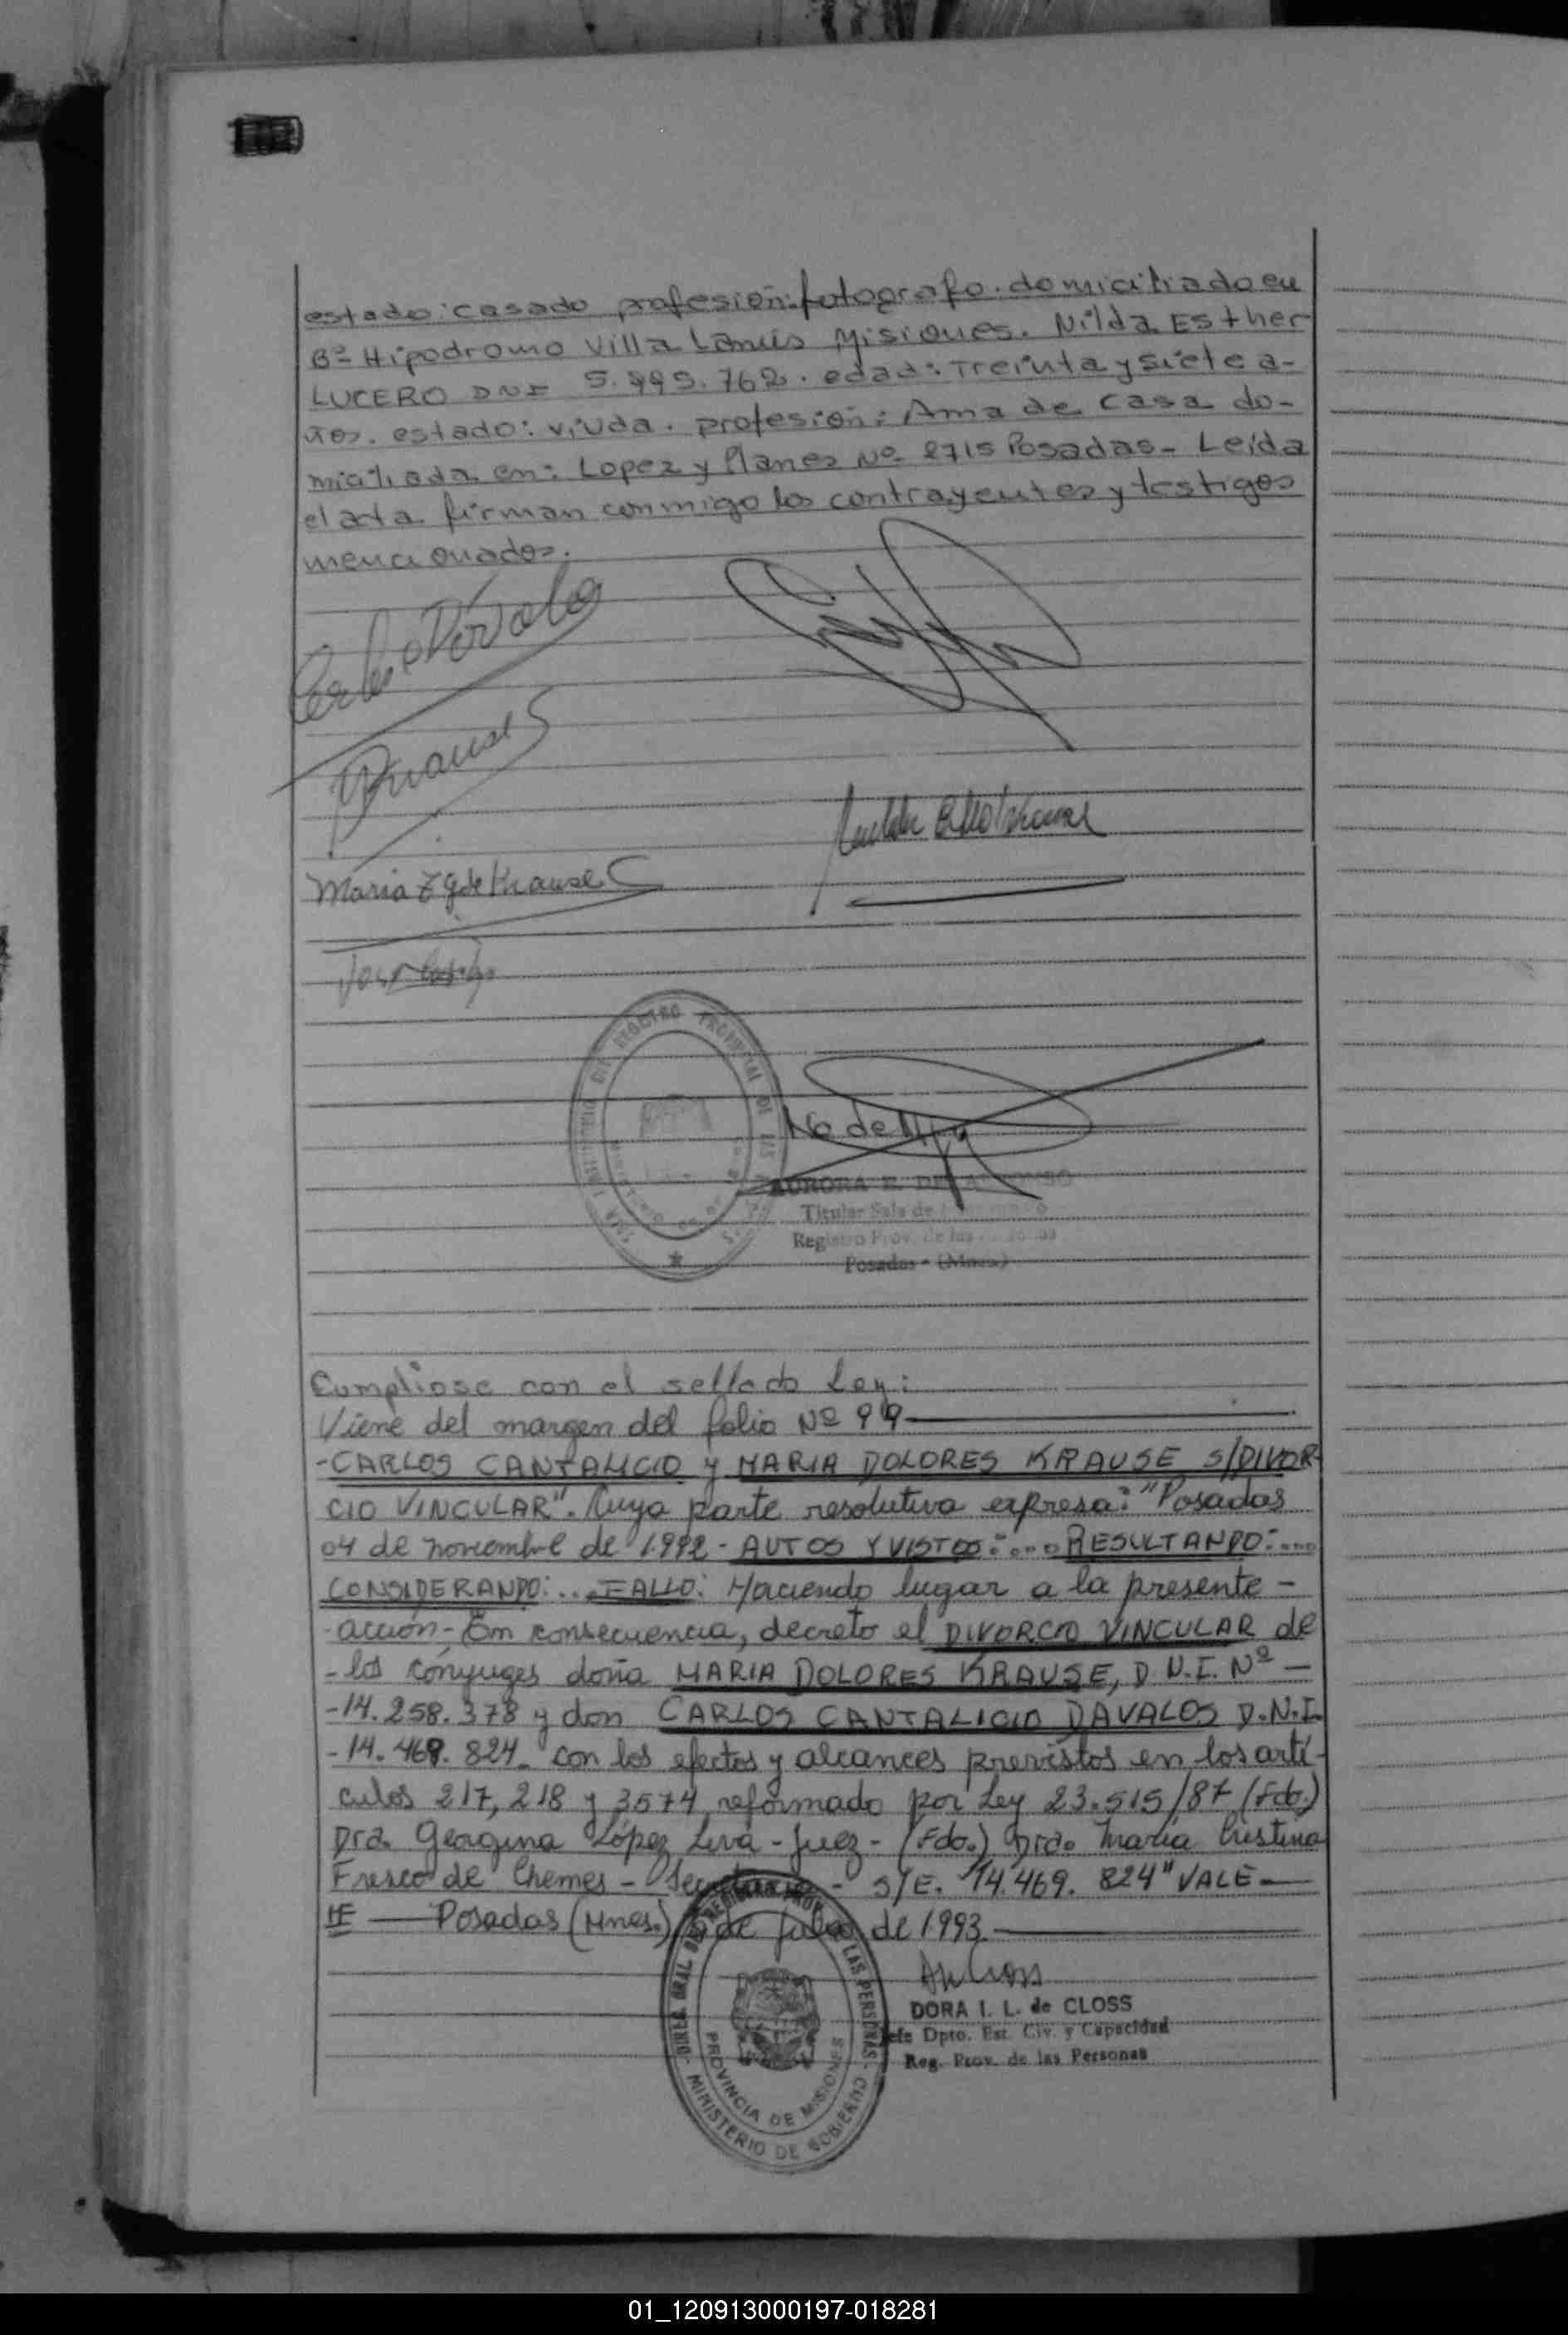 estado: casado profesión: fotografo. domiciliado en
Bº Hipodromo Villa Lanús Misiones. Nilda Esther
LUCERO DNI 5.995.762. edad: Treinta y siete a-
ños. estado: viuda. profesión: Ama de casa do-
miciliada en: Lopez y Planes Nº 2715 Posadas- Leída
el acta firman conmigo los contrayentes y testigos
mencionados.
Krause
Maria Z G de Krause
AURORA E. DE
Titular Sala de
Registro Prov. de las
Posadas - (Mnes.)
Cumpliose con el sellado Ley:
Viene del margen del folio Nº 99
-CARLOS CANTALICIO y MARIA DOLORES KRAUSE S/DIVOR-
CIO VINCULAR". Cuya parte resolutiva expresa: "Posadas
04 de noviembre de 1.992- AUTOS Y VISTOS:... RESULTANDO:...
CONSIDERANDO:... FALLO: Haciendo lugar a la presente -
-acción- En consecuencia, decreto el DIVORCIO VINCULAR de
-los cónyuges doña MARIA DOLORES KRAUSE, D.N.I. Nº -
-14.258.378 y don CARLOS CANTALICIO DAVALOS D.N.I.
-14.469.824- con los efectos y alcances previstos en los artí-
culos 217, 218 y 3574 reformado por Ley 23.515/87 (Fdo.)
Dra. Georgina López Leiva - Juez - (Fdo.) Dra. María Cristina
Fresco de Chemes - - S/E. 14.469. 824" VALE -
Posadas (Mnes.) de de 1993
DORA I. L. de CLOSS
Jefe Dpto. Est. Civ. y Capacidad
Reg. Prov. de las Personas
PROVINCIA DE MISIONES
MINISTERIO DE GOBIERNO
01_120913000197-018281